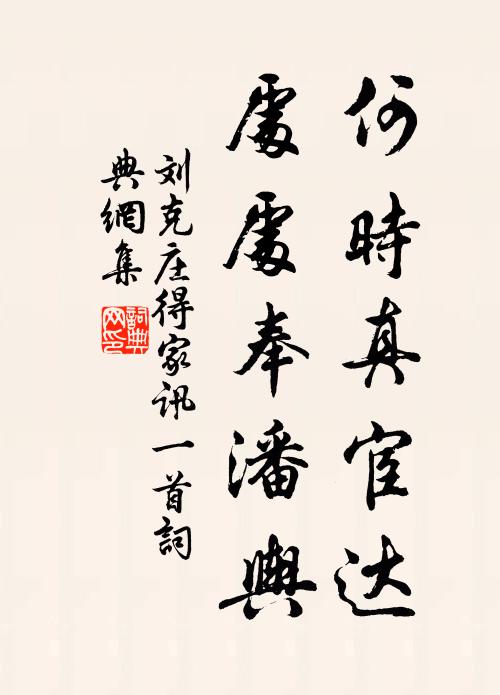 何時真宦达
處處奉潘輿
刘克庄得家讯一首詞
典網集
詞典
网印